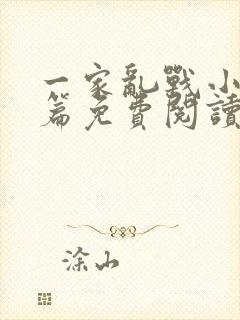 一家亂戰小
篇免費閱讀
涂山